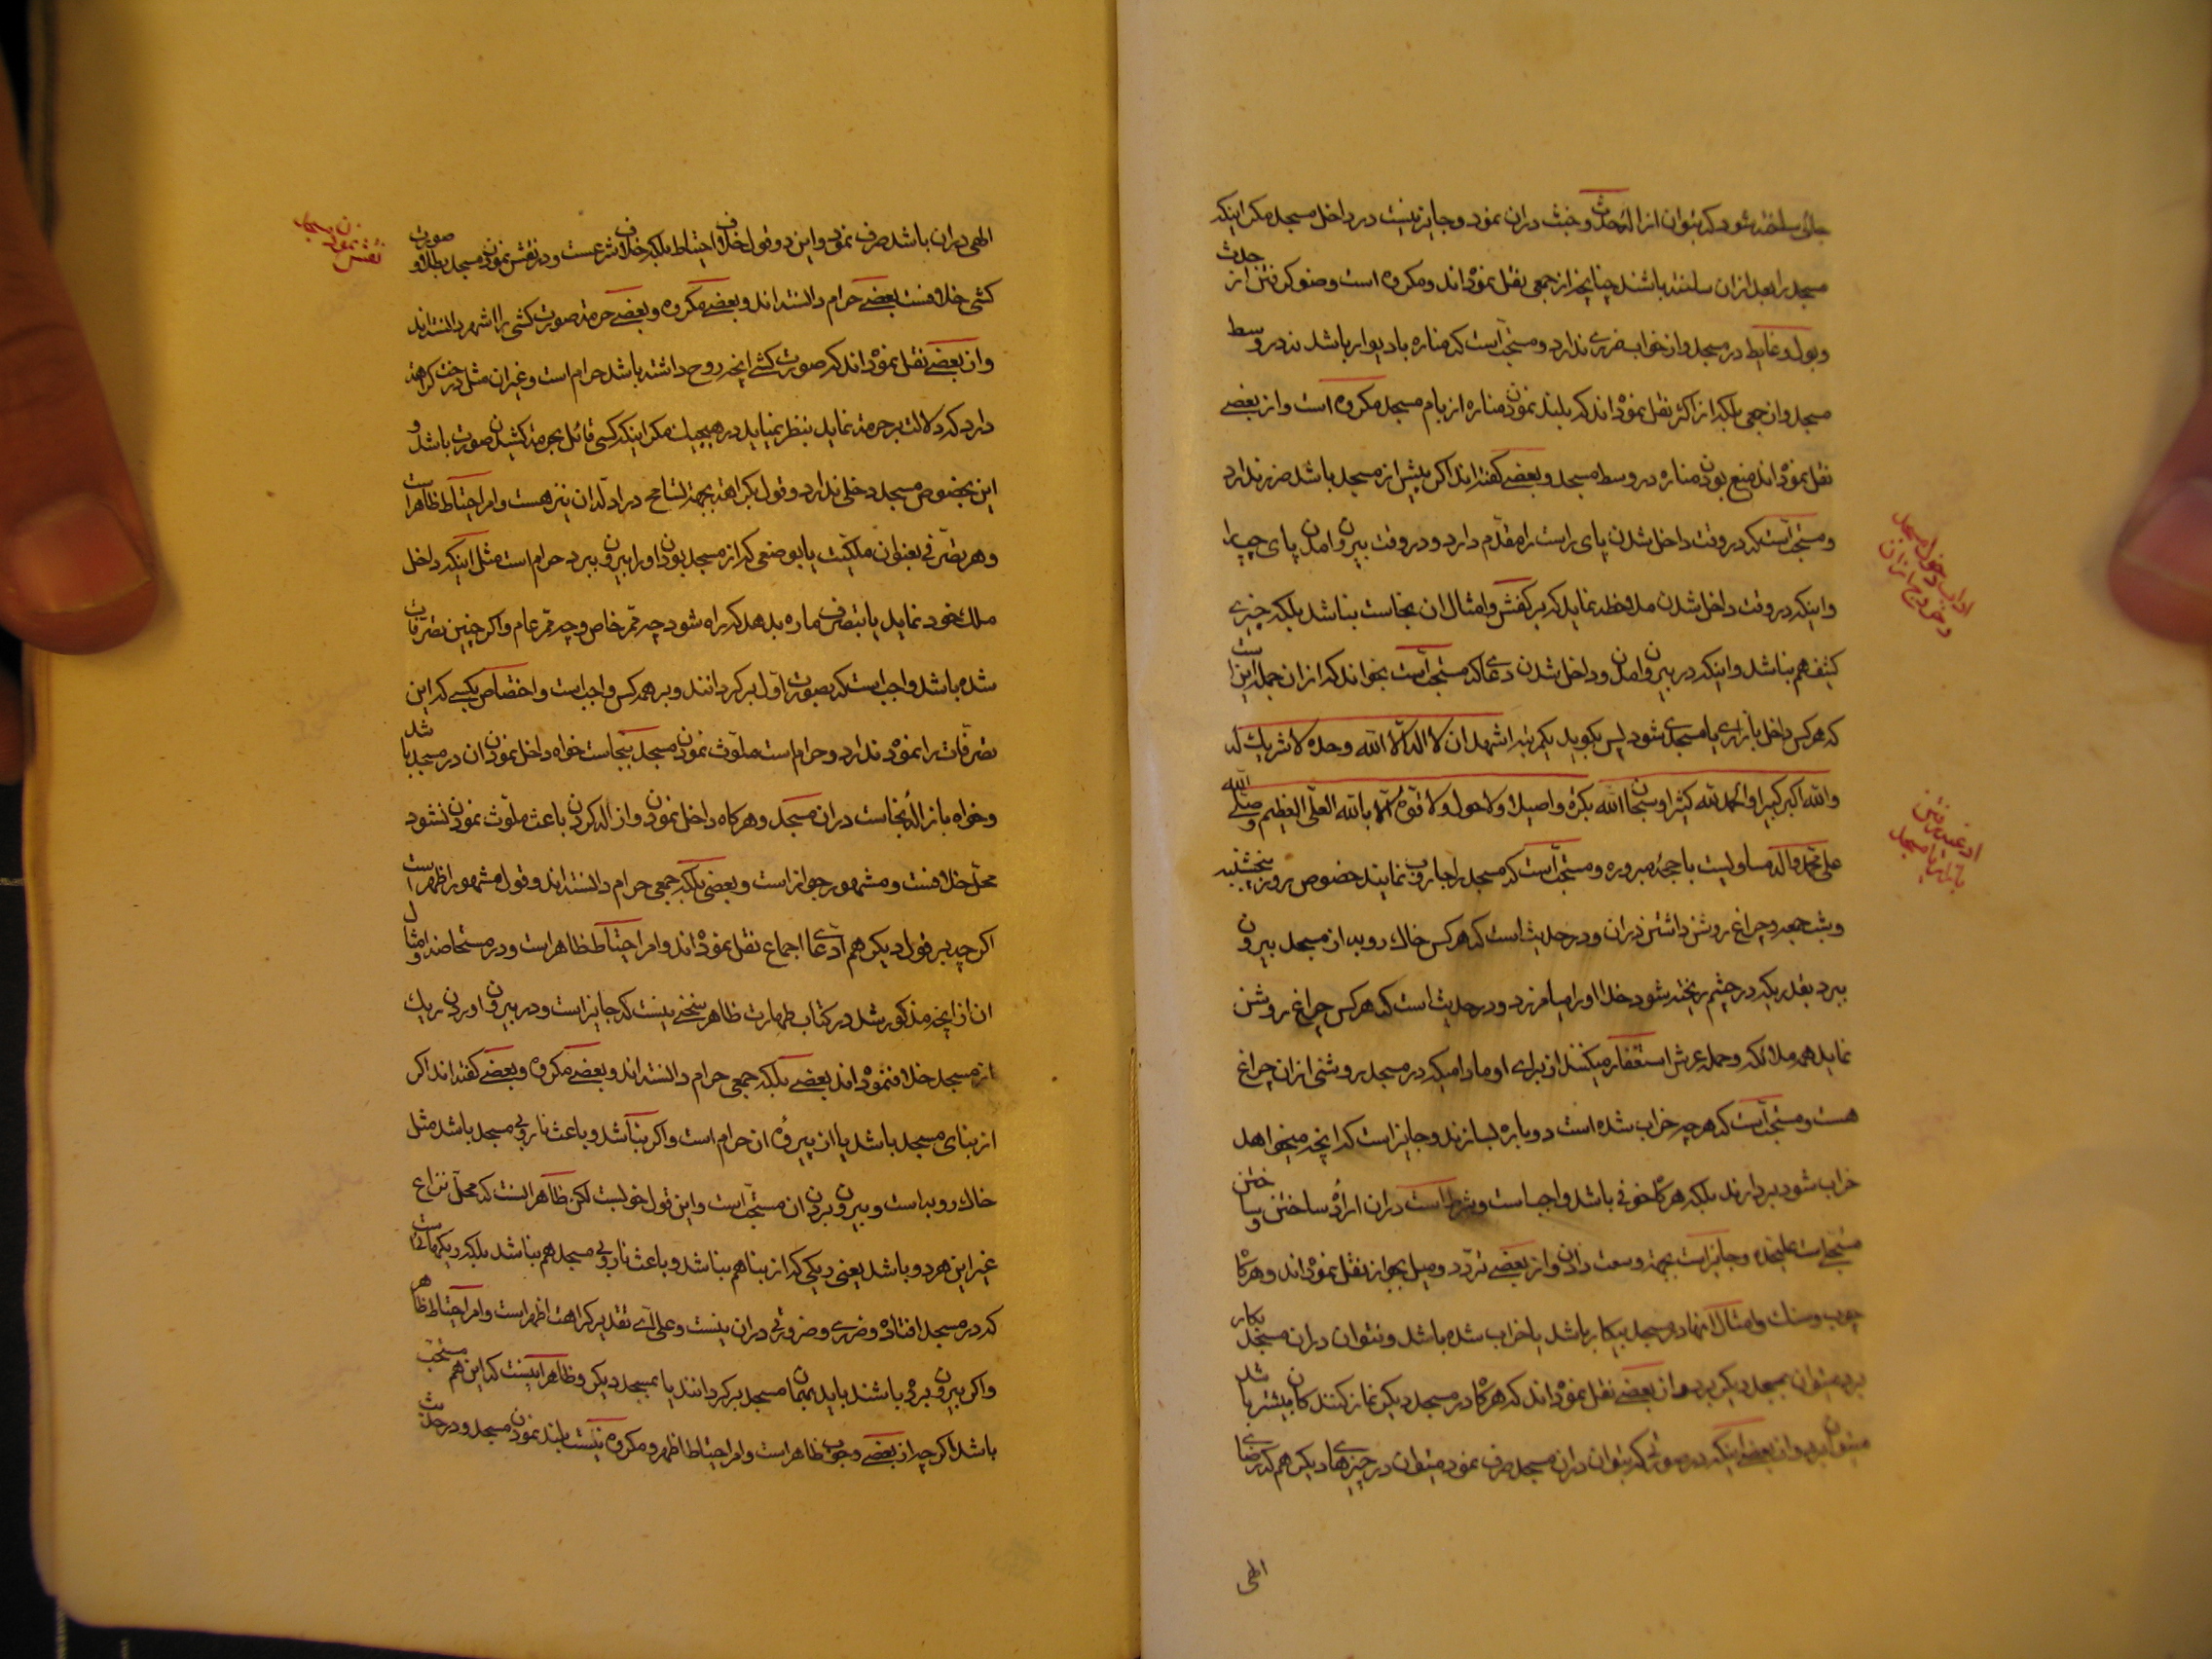 جائی ساخته شود که بتوان ازاله حدث و خبث دران نمود و جایز نیست در داخل مسجد مکر اینکه
مسجد را بعد ازان ساخته باشند چنانچه از جمعی نقل نموده اند و مکروه است وضو کرفتن از حدث
و بول و غایط در مسجد و از خواب ضرری ندارد و مستحب است که مناره با دیوار باشد نه در وسط
مسجد و از جمعی بلکه از اکثر نقل نموده اند که بلند نمودن مناره از بام مسجد مکروه است و از بعضی
نقل نموده اند منع بودن مناره در وسط مسجد و بعضی کفته اند اکر پیش از مسجد باشد ضرر ندارد
و مستحب است که در وقت داخل شدن پای راست را مقدم دارد و در وقت بیرون امدن پای چپ را
و اینکه در وقت داخل شدن ملاحظه نماید که بر کفش و امثال ان نجاست نباشد بلکه چیزی
کثیف هم نباشد و اینکه در بیرون امدن و داخل شدن دعا که مستحب است بخواند که ازان جمله این است
که هر کس داخل بازاری یا مسجدی شود پس بکوید یکمرتبه اشهد ان لا اله الا الله وحده لا شریك له
والله اکبر کبیرا والحمد لله کثیرا وسبحان الله بکرة واصیلا ولا حول ولا قوة الا بالله العلی العظیم وصلی الله
علی محمد واله مساویست با حجه مبروره و مستحب است که مسجد را جاروب نمایند خصوص روز پنجشنبه
و شب جمعه و چراغ روشن داشتن دران و در حدیث است که هر کس خاك روبه از مسجد بیرون
ببرد بقدریکه در چشم ریخته شود خدا او را بیامرزد و در حدیث است که هر کس چراغ روشن
نماید همه ملائکه و حمله عرش استغفار میکنند از برای او مادامیکه در مسجد روشنی ازان چراغ
هست و مستحب است که هر چه خراب شده است دوباره بسازند و جایز است که انچه میخواهد
خراب شود بردارند بلکه هرکاه خوفی باشد واجب است و شرط است دران اراده ساختن و ساختن
مستحب است علیحده و جایز است بجهة وسعت دادن و از بعضی تردد و میل بجواز نقل نموده اند و هرکاه
چوب و سنك و امثال انها در مسجد بیکار باشد یا خراب شده باشد و نتوان دران مسجد بکار
برد میتوان بمسجد دیکر برد و از بعضی نقل نموده اند که هرکاه در مسجد دیکر نماز کنند کان بیشتر باشد
میتوان برد و از بعضی اینکه در صورتی که نتوان دران مسجد صرف نمود میتوان در چیزهای دیکر هم که رضای
الهی
اداب دخول مسجد
و خروج ازان
ادعیه رفتن
ببازار یا مسجد
الهی دران باشد صرف نمود و این دو قول خلاف احتیاط بلکه خلاف شرعست و در نقش نمودن مسجد بطلا و صورت
کشی خلافست بعضی حرام دانسته اند و بعضی مکروه و بعضی حرمة صورت کشی را اشهر دانسته اند
و از بعضی نقل نموده اند که صورت کشی انچه روح داشته باشد حرام است و غیر ان مثل درخت کراهة
دارد که دلالت بر حرمة نماید بنظر نمیاید در هیچیك مکر اینکه کسی قائل بحرمة کشیدن صورت باشد و
این بخصوص مسجد دخلی ندارد و قول بکراهة بجهة تسامح در ادله ان نیز هست و امر احتیاط ظاهر است
و هر تصرفی بعنوان ملکیت یا بوضعی که از مسجد بودن او را بیرون ببرد حرام است مثل اینکه داخل
ملك خود نماید یا بتصرف ماره بدهد که راه شود چه ممر خاص و چه ممر عام و اکر چنین تصرفات
شده باشد واجب است که بصورت اول برکردانند و بر همه کس واجب است و اختصاص بکسی که این
تصرفات را نموده ندارد و حرام است ملوث نمودن مسجد بنجاست خواه داخل نمودن ان در مسجد باشد
و خواه بازاله نجاست دران مسجد و هرکاه داخل نمودن و ازاله کردن باعث ملوث نمودن نشود
محل خلافست و مشهور جواز است و بعضی بلکه جمعی حرام دانسته اند و قول مشهور اظهر است
اکر چه بر قول دیکر هم ادعا اجماع نقل نموده اند و امر احتیاط ظاهر است و در مستحاضه و امثال
ان از انچه مذکور شد در کتاب طهارت ظاهر سخنی نیست که جایز است و در بیرون اوردن ریك
از مسجد خلاف نموده اند بعضی بلکه جمعی حرام دانسته اند و بعضی مکروه و بعضی کفته اند اکر
از بنای مسجد باشد یا از پیروه ان حرام است و اکر نباشد و باعث ناروبی مسجد باشد مثل
خاك روبه است و بیرون بردن ان مستحب است و این قول خوبست لکن ظاهر انست که محل نزاع
غیر این هر دو باشد یعنی ریکی که از بنا هم نباشد و باعث ناروبی مسجد هم نباشد بلکه
که در مسجد افتاده و ضرری و ضرورتی دران نیست و علی ای تقدیر کراهت اظهر است و امر احتیاط ظاهر
و اکر بیرون برده باشند باید بهمان مسجد برکردانند یا بمسجد دیکر و ظاهر اینست که این هم مستحب
باشد اکر چه از بعضی وجوب ظاهر است و امر احتیاط اظهر و مکروه نیست بلند نمودن مسجد و در حدیث
نقش نمودن مسجد